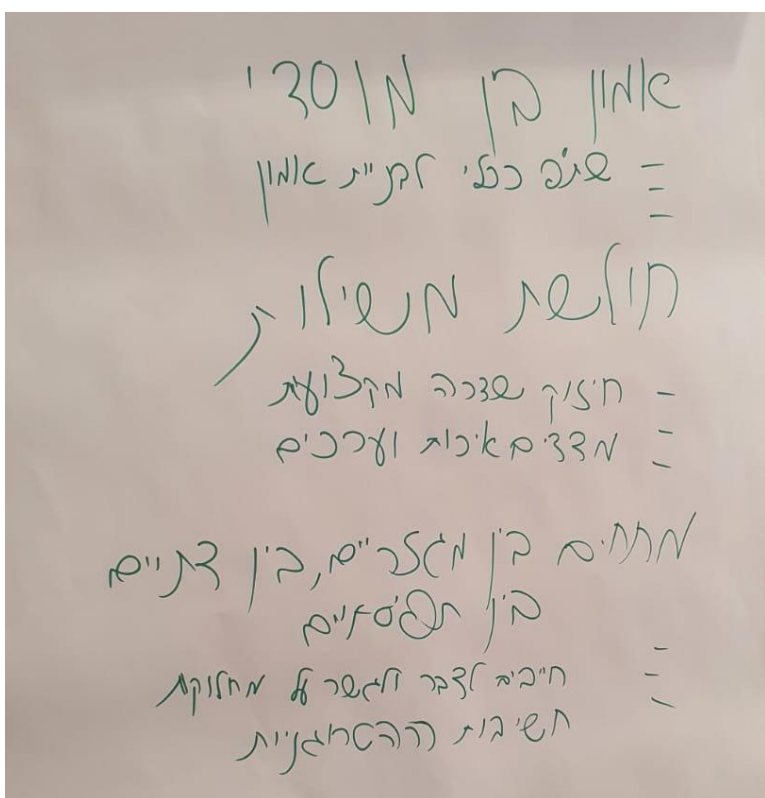 אמון בין מוסדי
- שת"פ ככלי לבניית אמון
חולשת משילות
- חיזוק שדרה מקצועית
- מדדים איכות וערכים
מתחים בין מגזריים, בין דתיים
בין תפיסתיים
- חייבים לדבר ולגשר על מחלוקת
חשיבות ההטרוגניות